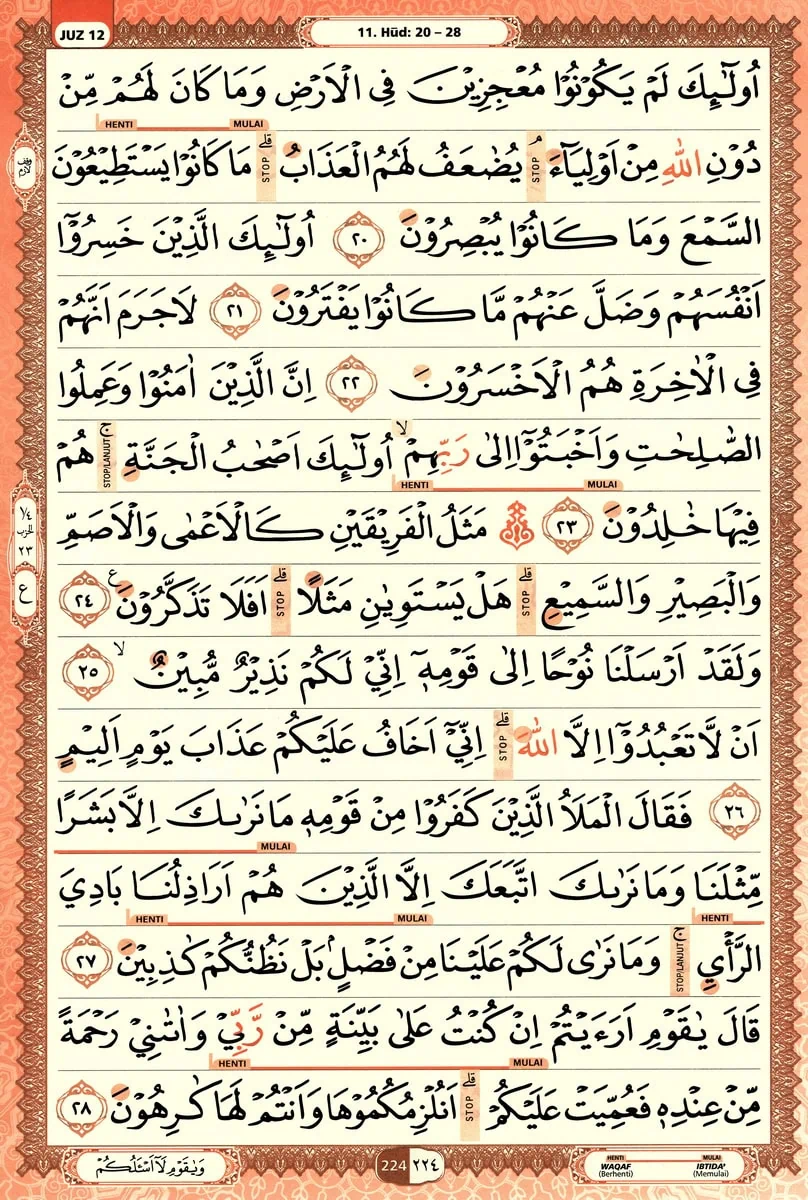 JUZ 12
11. Hūd: 20 – 28
اُولٰۤىِٕكَ لَمْ يَكُوْنُوْا مُعْجِزِيْنَ فِى الْاَرْضِ وَمَا كَانَ لَهُمْ مِّنْ
HENTI MULAI
دُوْنِ اللّٰهِ مِنْ اَوْلِيَاۤءَ ۘ STOP يُضٰعَفُ لَهُمُ الْعَذَابُ ۗ STOP مَا كَانُوْا يَسْتَطِيْعُوْنَ
وقف لازم
السَّمْعَ وَمَا كَانُوْا يُبْصِرُوْنَ ٢٠ اُولٰۤىِٕكَ الَّذِيْنَ خَسِرُوْٓا
اَنْفُسَهُمْ وَضَلَّ عَنْهُمْ مَّا كَانُوْا يَفْتَرُوْنَ ٢١ لَاجَرَمَ اَنَّهُمْ
فِى الْاٰخِرَةِ هُمُ الْاَخْسَرُوْنَ ٢٢ اِنَّ الَّذِيْنَ اٰمَنُوْا وَعَمِلُوا
الصّٰلِحٰتِ وَاَخْبَتُوْٓا اِلٰى رَبِّهِمْ ۙ اُولٰۤىِٕكَ اَصْحٰبُ الْجَنَّةِ ۚ STOP/LANJUT هُمْ
HENTI MULAI
فِيْهَا خٰلِدُوْنَ ٢٣ ۞ مَثَلُ الْفَرِيْقَيْنِ كَالْاَعْمٰى وَالْاَصَمِّ
١/٤ الحزب ٢٣
وَالْبَصِيْرِ وَالسَّمِيْعِ ۗ STOP هَلْ يَسْتَوِيٰنِ مَثَلًا ۗ STOP اَفَلَا تَذَكَّرُوْنَ ࣖ ٢٤
ع
وَلَقَدْ اَرْسَلْنَا نُوْحًا اِلٰى قَوْمِهٖٓ اِنِّيْ لَكُمْ نَذِيْرٌ مُّبِيْنٌ ۙ ٢٥
اَنْ لَّا تَعْبُدُوْٓا اِلَّا اللّٰهَ ۗ STOP اِنِّيْٓ اَخَافُ عَلَيْكُمْ عَذَابَ يَوْمٍ اَلِيْمٍ
٢٦ فَقَالَ الْمَلَاُ الَّذِيْنَ كَفَرُوْا مِنْ قَوْمِهٖ مَا نَرٰىكَ اِلَّا بَشَرًا
MULAI
مِّثْلَنَا وَمَا نَرٰىكَ اتَّبَعَكَ اِلَّا الَّذِيْنَ هُمْ اَرَاذِلُنَا بَادِيَ
HENTI MULAI HENTI
الرَّأْيِ ۚ STOP/LANJUT وَمَا نَرٰى لَكُمْ عَلَيْنَا مِنْ فَضْلٍۢ بَلْ نَظُنُّكُمْ كٰذِبِيْنَ ٢٧
قَالَ يٰقَوْمِ اَرَءَيْتُمْ اِنْ كُنْتُ عَلٰى بَيِّنَةٍ مِّنْ رَّبِّيْ وَاٰتٰىنِيْ رَحْمَةً
HENTI MULAI
مِّنْ عِنْدِهٖ فَعُمِّيَتْ عَلَيْكُمْ ۗ STOP اَنُلْزِمُكُمُوْهَا وَاَنْتُمْ لَهَا كٰرِهُوْنَ ٢٨
وَيٰقَوْمِ لَآ اَسْـَٔلُكُمْ
224 ٢٢٤
HENTI MULAI
WAQAF IBTIDA'
(Berhenti) (Memulai)